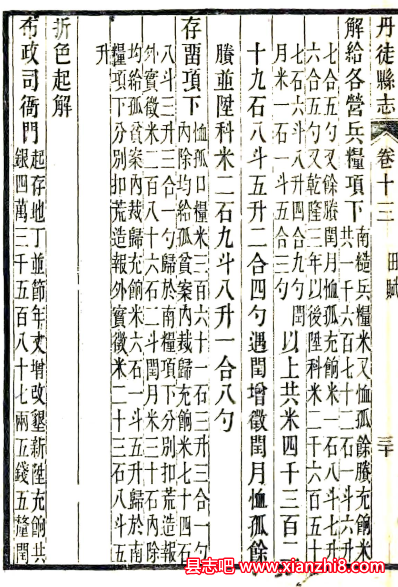 丹徒縣志 卷十三 田賦 三十
解給各營兵糧項下
兵糧米又恤孤餘賸充餉米
共一千六百七十二石一斗六升
七合五勺又餘賸閏月恤孤充餉米一石八斗七升
六合五勺又乾隆三年以後陞科米二千六百五十
七石六斗八升四合九勺閏
月米一石一斗五合三勺
以上共米四千三百二
十九石八斗五升二合四勺遇閏增徵閏月恤孤餘
賸並陞科米二石九斗八升一合八勺
存畱項下
恤孤口糧米三百六十一石三升三合一勺
內除均給孤貧案內裁歸充餉米七十四石
八斗三升三合一勺歸於南糧項下分別扣荒造報
外實徵米二百八十六石二斗閏月米三十石內除
均給孤貧案內裁歸充餉米六石一斗五升歸於南
糧項下分別扣荒造報外實徵米二十三石八斗五
升
折色起解
布政司衙門
起存地丁並節年丈增改墾新陞充餉共
銀四萬三千五百八十七兩五錢五釐閏
县志吧-www.xianzhi8.com
县志吧-www.xianzhi8.com